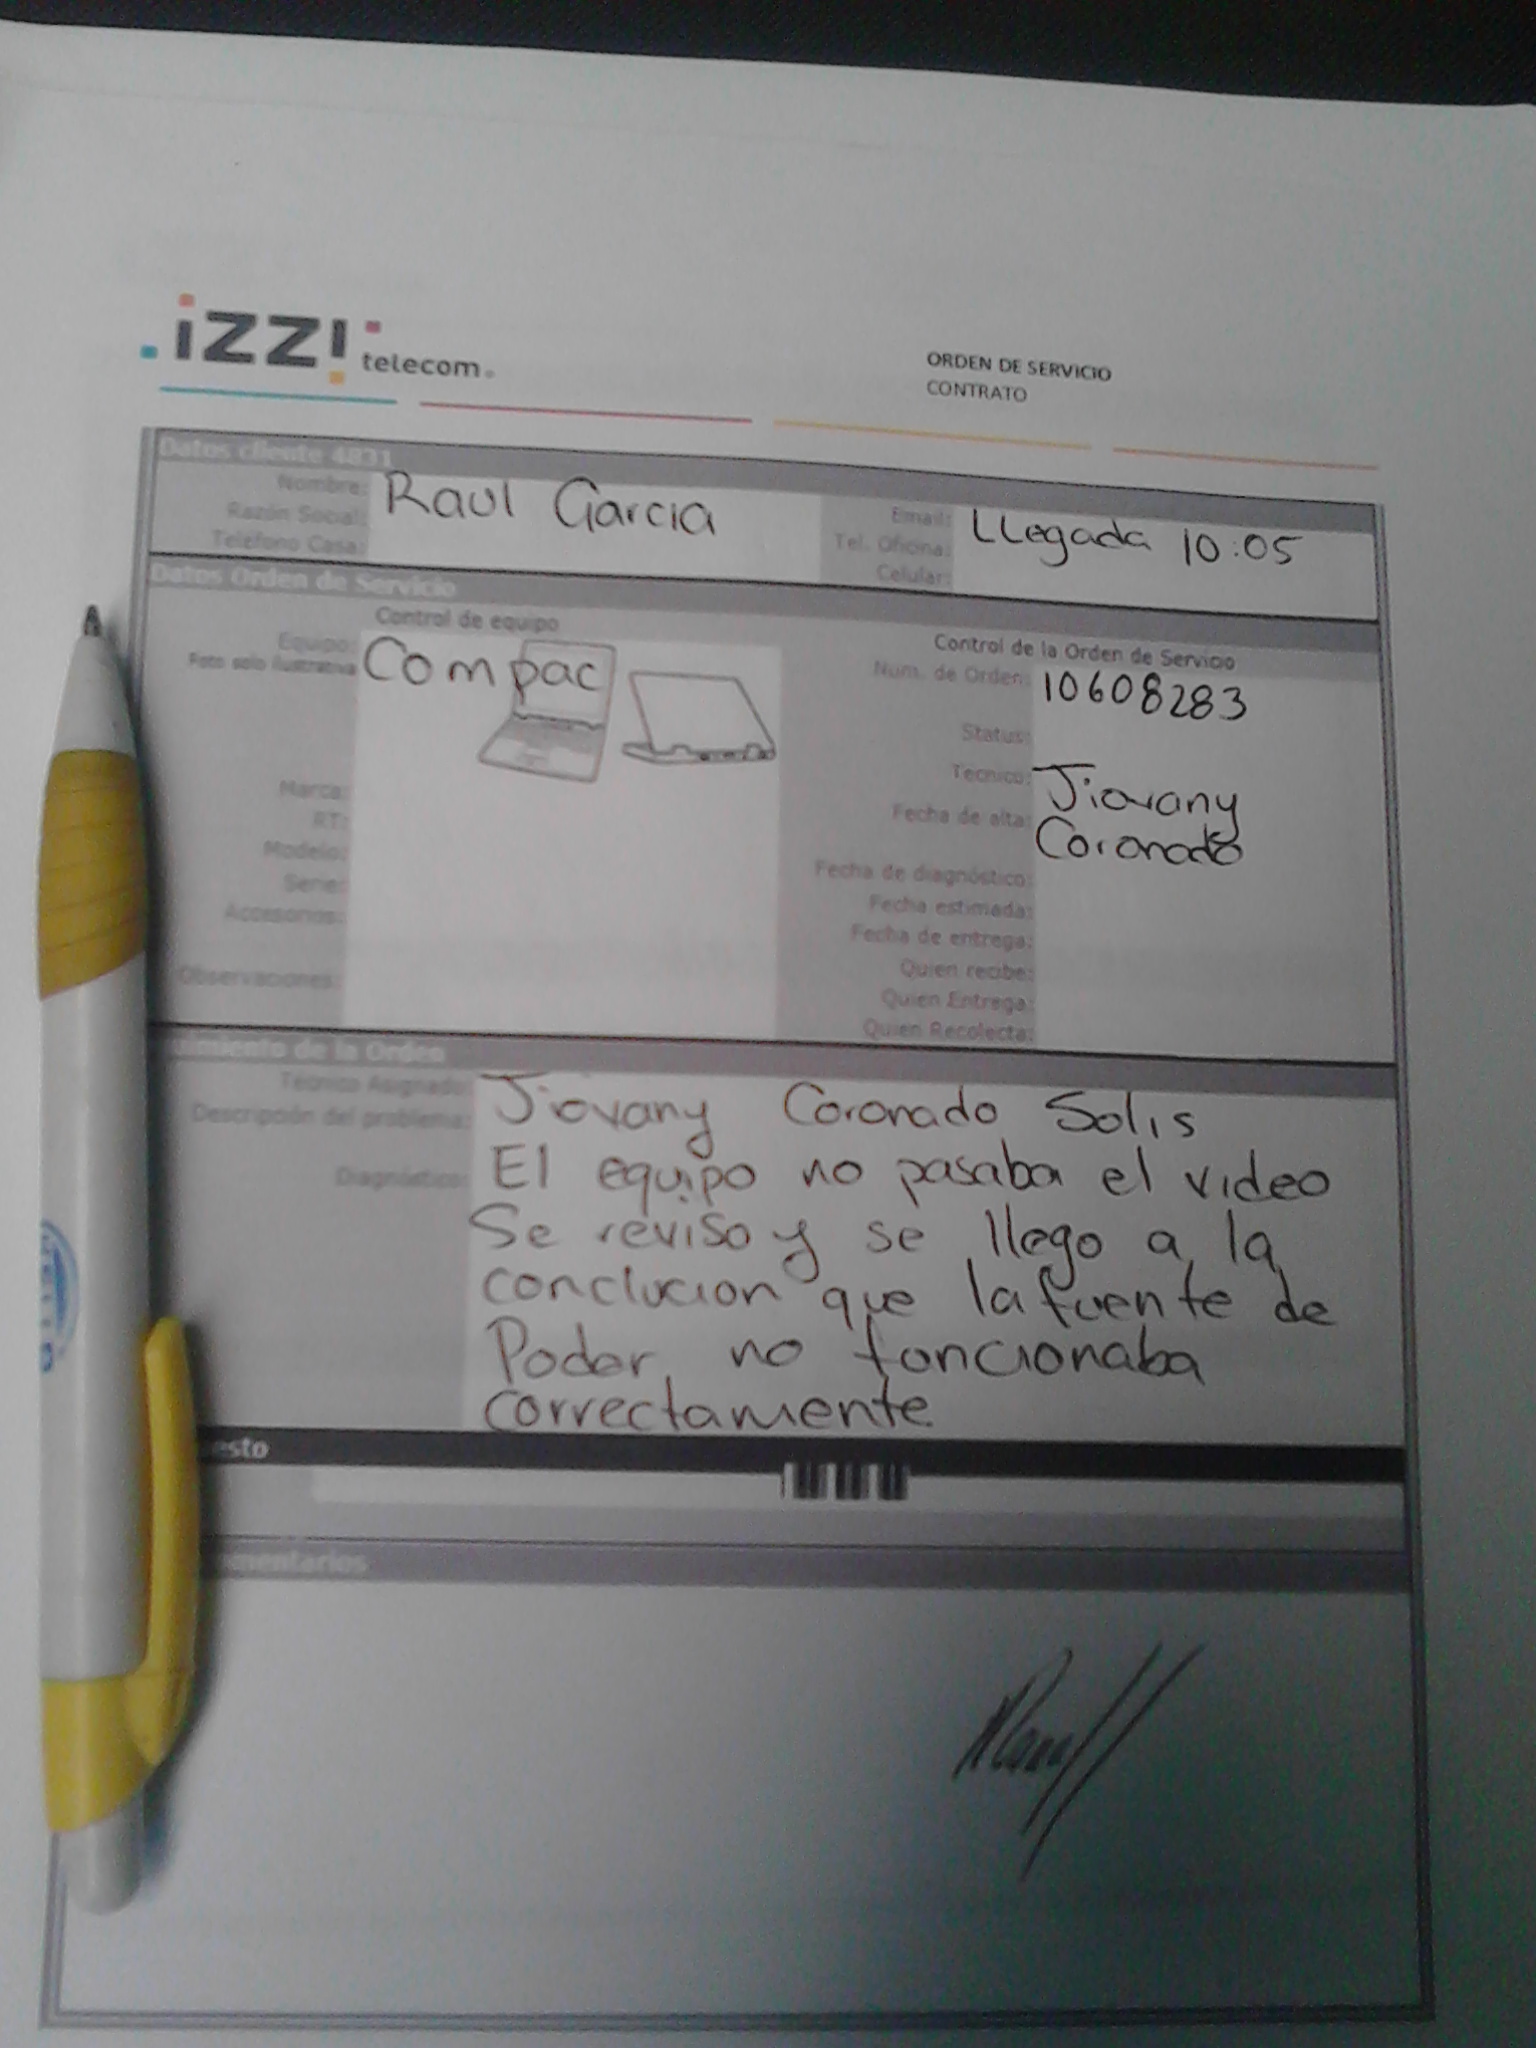 izz! telecom.
ORDEN DE SERVICIO
CONTRATO
Datos cliente 4831
Nombre: Raul Garcia
Razón Social:
Teléfono Casa:
Email: Llegada 10:05
Tel. Oficina:
Celular:
Datos Orden de Servicio
Control de equipo
Equipo: Compac
Foto solo ilustrativa
Marca:
RT:
Modelo:
Serie:
Accesorios:
Observaciones:
Control de la Orden de Servicio
Num. de Orden: 10608283
Status:
Tecnico: Jiovany
Fecha de alta: Coronado
Fecha de diagnóstico:
Fecha estimada:
Fecha de entrega:
Quien recibe:
Quien Entrega:
Quien Recolecta:
uimiento de la Orden
Tecnico Asignado: Jiovany Coronado Solis
Descripción del problema:
Diagnóstico: El equipo no pasaba el video
Se reviso y se llego a la
conclucion que la fuente de
Poder no funcionaba
correctamente
esto
omentarios